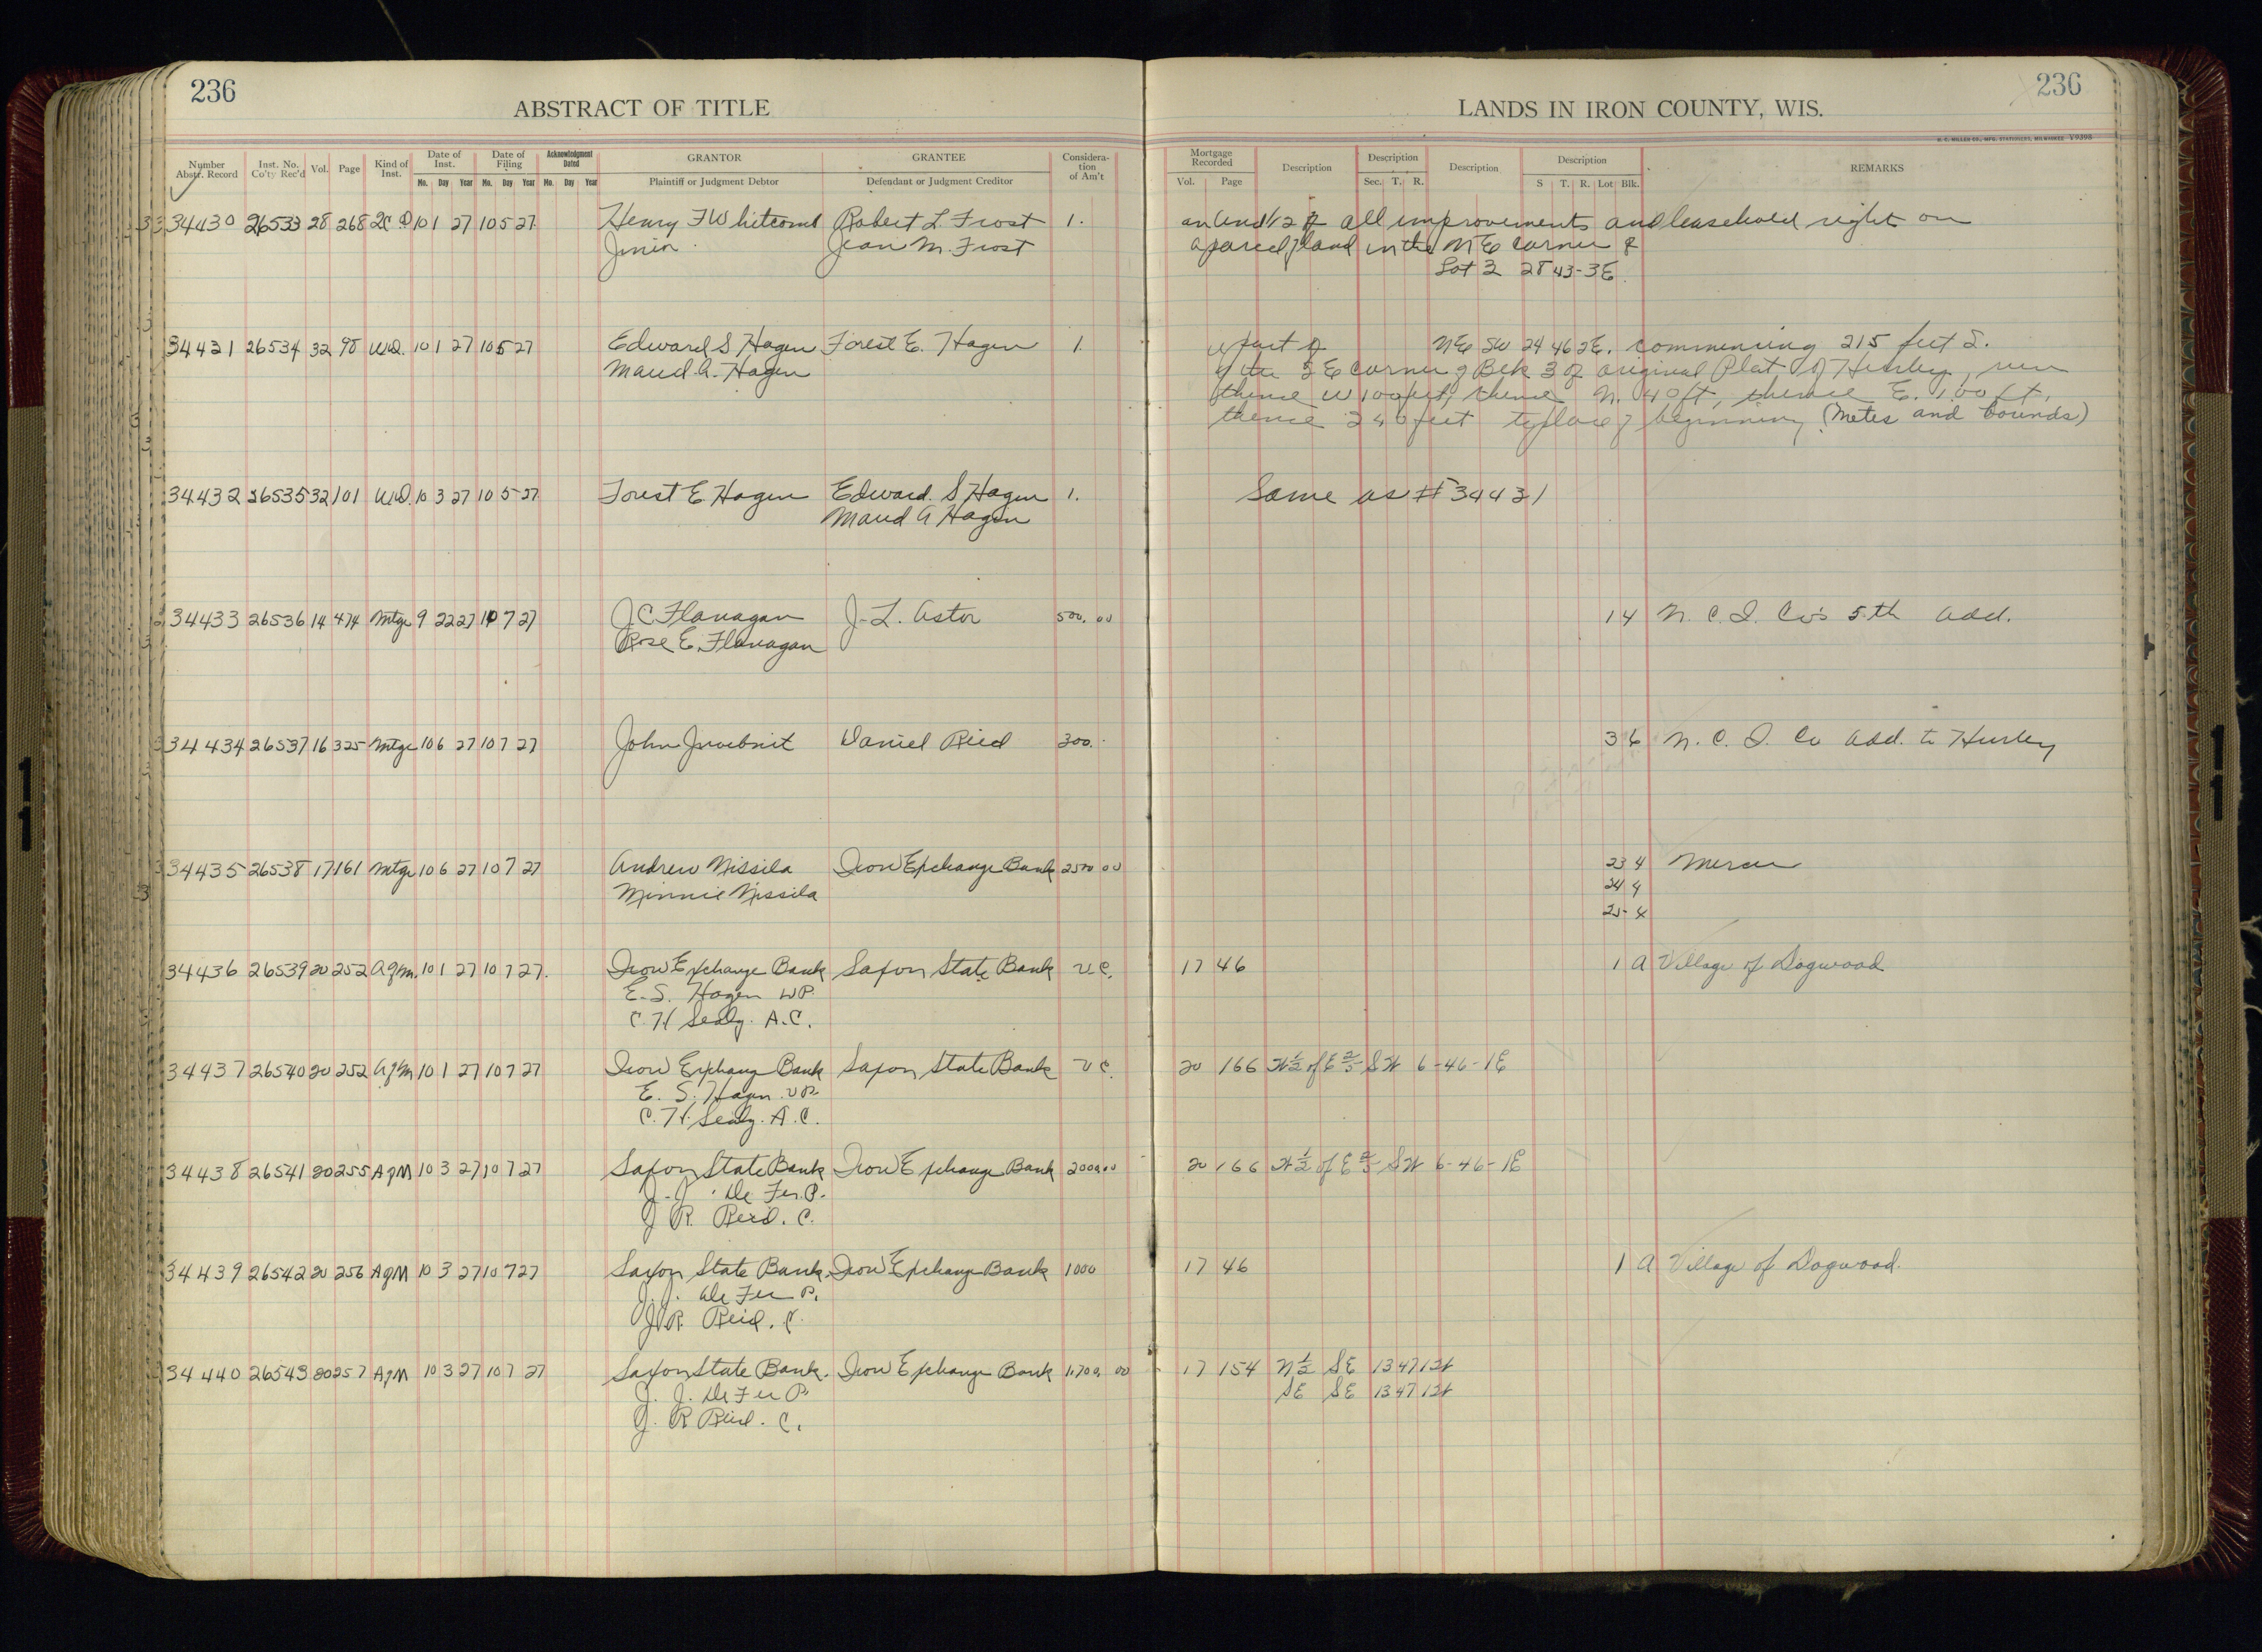 236
ABSTRACT OF TITLE
LANDS IN IRON COUNTY, WIS.
236
H. C. MILLER CO., MFG. STATIONERS, MILWAUKEE V9398
Number Abstr. Record | Inst. No. Co'ty Rec'd | Vol. | Page | Kind of Inst. | Date of Inst. Mo. Day Year | Date of Filing Mo. Day Year | Acknowledgment Dated Mo. Day Year | GRANTOR Plaintiff or Judgment Debtor | GRANTEE Defendant or Judgment Creditor | Consideration of Am't | Mortgage Recorded Vol. Page | Description | Description Sec. T. R. | Description | Description S T. R. Lot Blk. | REMARKS
34430 26533 28 268 2C D 10 1 27 10 5 27 Henry F Whitcomb Robert L. Frost 1. an und 1/2 of all improvements and leasehold right on
Junior. Jean M. Frost a parcel of land in the NE corner of
Lot 2 28 43-3E
34431 26534 32 98 W.D. 10 1 27 10 5 27 Edward S Hagen Forest E. Hagen 1. a part of NE SW 24 46 2E. commencing 215 feet S.
Maud A. Hagen of the SE corner of Blk 3 of original Plat of Hurley, run
thence W 100 feet, thence N. 40 ft, thence E. 100 ft,
thence S 40 feet to place of beginning (Metes and bounds)
34432 26535 32 101 W.D. 10 3 27 10 5 27 Forest E Hagen Edward. S Hagen 1. Same as # 34431
Maud A Hagen
34433 26536 14 474 Mtge 9 22 27 10 7 27 J C Flanagan J. L. Astor 500.00 14 N. C. I. Co's 5th Add.
Rose E. Flanagan
34434 26537 16 325 Mtge 10 6 27 10 7 27 John Daniel Reid 300. 3 6 N. C. I. Co Add. to Hurley
34435 26538 17 161 Mtge 10 6 27 10 7 27 Andrew Nissila Iron Exchange Bank 2500 00 23 4 Mercer
Minnie Nissila 24 4
25 4
34436 26539 20 252 Agm. 10 1 27 10 7 27. Iron Exchange Bank Saxon State Bank V.C. 17 46 1 A Village of Dogwood
E. S. Hagen V.P.
C. H Sealy. A.C.
34437 26540 20 252 AgM 10 1 27 10 7 27 Iron Exchange Bank Saxon State Bank V C. 20 166 W½ of E 2/5 SW 6-46-1E
E. S. Hagen V.P.
C. H. Sealy. A.C.
34438 26541 20 255 AgM 10 3 27 10 7 27 Saxon State Bank Iron Exchange Bank 2000.00 20 166 W½ of E 2/5 SW 6-46-1E
J. J. De Fer. P.
J R. Reid. C.
34439 26542 20 256 AgM 10 3 27 10 7 27 Saxon State Bank Iron Exchange Bank 1000 17 46 1 A Village of Dogwood.
J. J. De Fer P.
J. R. Reid. C.
34440 26543 20 257 AgM 10 3 27 10 7 27 Saxon State Bank. Iron Exchange Bank 1,700. 00 17 154 N½ SE 13 47 1W
J. J. De Fer P. SE SE 13 47 1W
J. R Reid. C.